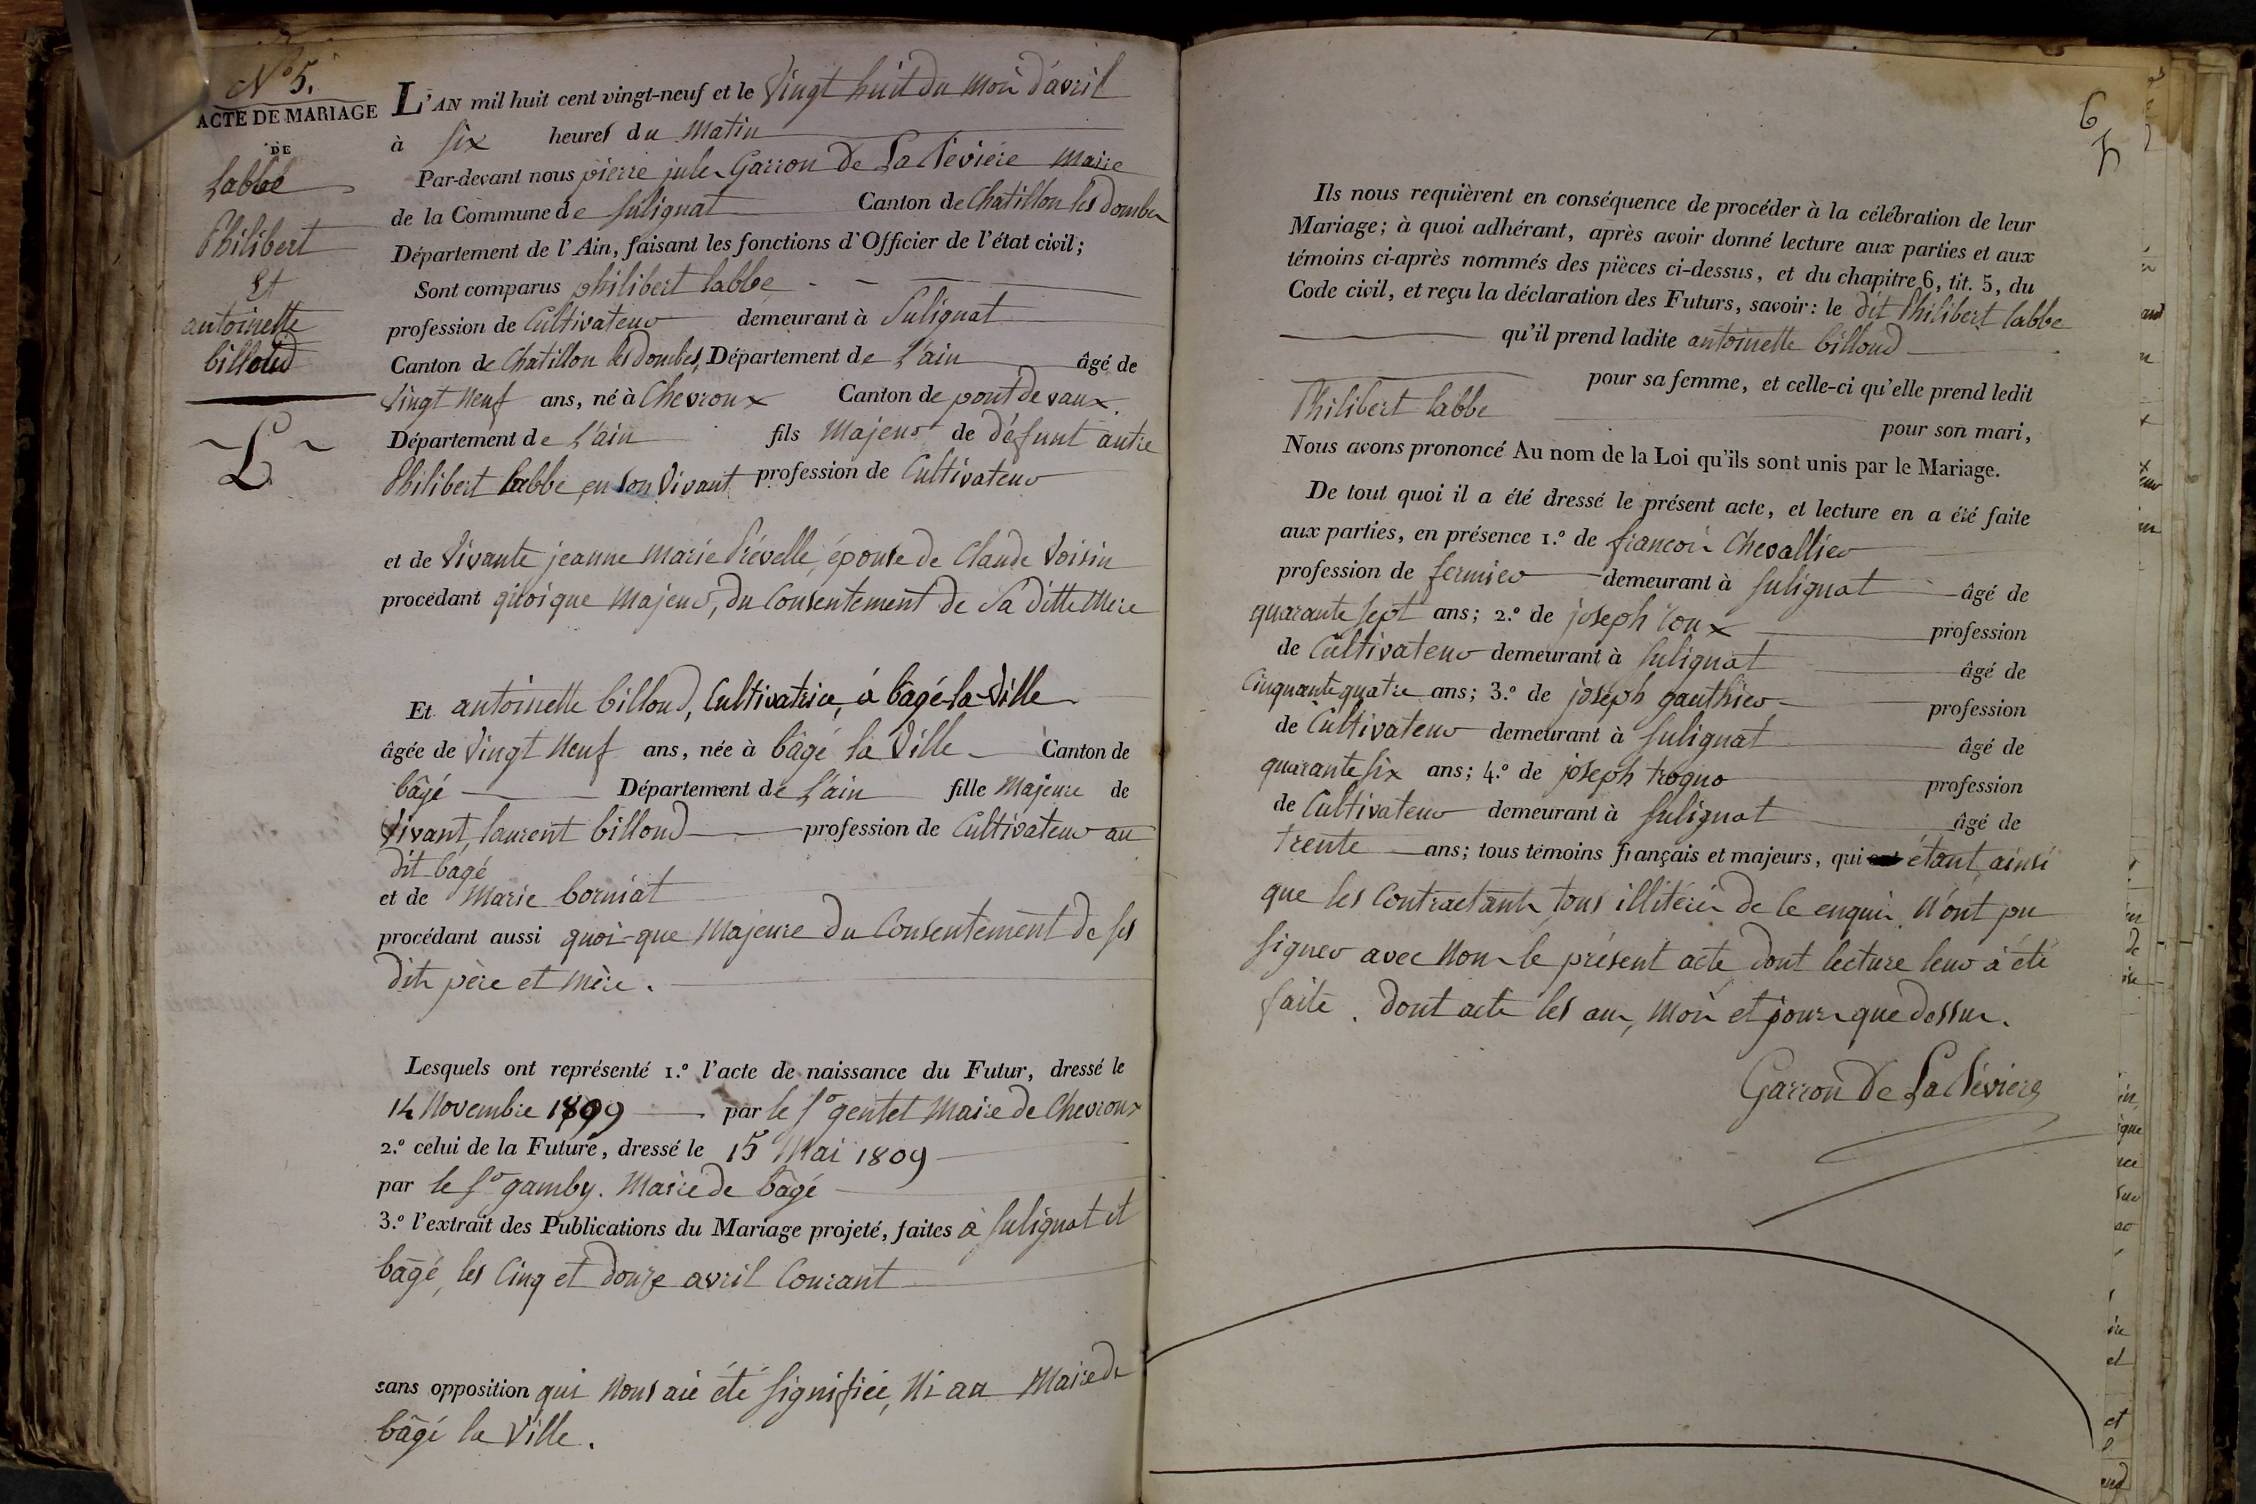 N° 5.
ACTE DE MARIAGE
DE
Labbé
Philibert
Et
antoinette
billoud
L
L'AN mil huit cent vingt-neuf et le Vingt huit du Moi d'avril
à Six heures du Matin
Par-devant nous pierre jules Garron De La Bévière Maire
de la Commune de Sulignat Canton de Chatillon les dombes
Département de l'Ain, faisant les fonctions d'Officier de l'état civil;
Sont comparus philibert labbe
profession de Cultivateur demeurant à Sulignat
Canton de Chatillon les dombes, Département de L'ain âgé de
Vingt Neuf ans, né à Chevroux Canton de pont de vaux.
Département de L'ain fils Majeur de défunt autre
Philibert labbe en son Vivant profession de Cultivateur
et de Vivante jeanne Marie épouse de Claude Voisin
procédant quoique Majeur, du Consentement de Sa ditte Mere
Et antoinette billoud, Cultivatrice, á bâgé-la-Ville
âgée de Vingt Neuf ans, née à bâgé la Ville Canton de
bâgé Département de L'ain fille Majeure de
Vivant, laurent billoud profession de Cultivateur au
dit bagé
et de Marie borniat
procédant aussi quoi-que Majeure Du Consentement de Ses
dits père et Mère.
Lesquels ont représenté 1.° l'acte de naissance du Futur, dressé le
14 Novembre 1899 par le Sr gentet Maire de Chevroux
2.° celui de la Future, dressé le 15 Mai 1809
par le Sr gamby. Maire de bâgé
3.° l'extrait des Publications du Mariage projeté, faites à Sulignat et
bâgé, les Cinq et douze avril Courant
sans opposition qui Nous aie été Signifiée, Ni au Maire de
bâgé la Ville.
6
Ils nous requièrent en conséquence de procéder à la célébration de leur
Mariage; à quoi adhérant, après avoir donné lecture aux parties et aux
témoins ci-après nommés des pièces ci-dessus, et du chapitre 6, tit. 5, du
Code civil, et reçu la déclaration des Futurs, savoir: le dit Philibert labbe
qu'il prend ladite antoinette billoud
pour sa femme, et celle-ci qu'elle prend ledit
Philibert labbe
pour son mari,
Nous avons prononcé Au nom de la Loi qu'ils sont unis par le Mariage.
De tout quoi il a été dressé le présent acte, et lecture en a été faite
aux parties, en présence 1.° de françois Chevallier
profession de fermier demeurant à Sulignat âgé de
quarante Sept ans; 2.° de joseph profession
de Cultivateur demeurant à Sulignat âgé de
Cinquante quatre ans; 3.° de joseph gauthier profession
de Cultivateur demeurant à Sulignat âgé de
quarante Six ans; 4.° de joseph profession
de Cultivateur demeurant à Sulignat âgé de
trente ans; tous témoins français et majeurs, qui étant, ainsi
que les Contractants tous illitérés de ce enquis, N'ont pu
Signer avec Nous le présent acte dont lecture leur a été
faite. Dont acte les an, Mois et jours que dessus.
Garron De La Bévière